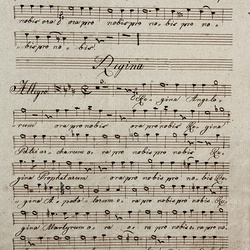 nobis ora ora pro nobis pro nobis pro no,
bis pro no, bis!
Regina
Allegro Re, gina Angelo,
rum ora pro nobis ora pro nobis Re, gina
Patriar, charum o, ra pro nobis pro no, bis Re,
gina Prophetarum ora pro nobis pro no, bis Re,
gina A, posto, lorum o, ra pro nobis pro nobis Re,
gina Martyrum o, ra o, ra pro nobis o, ra pro no,